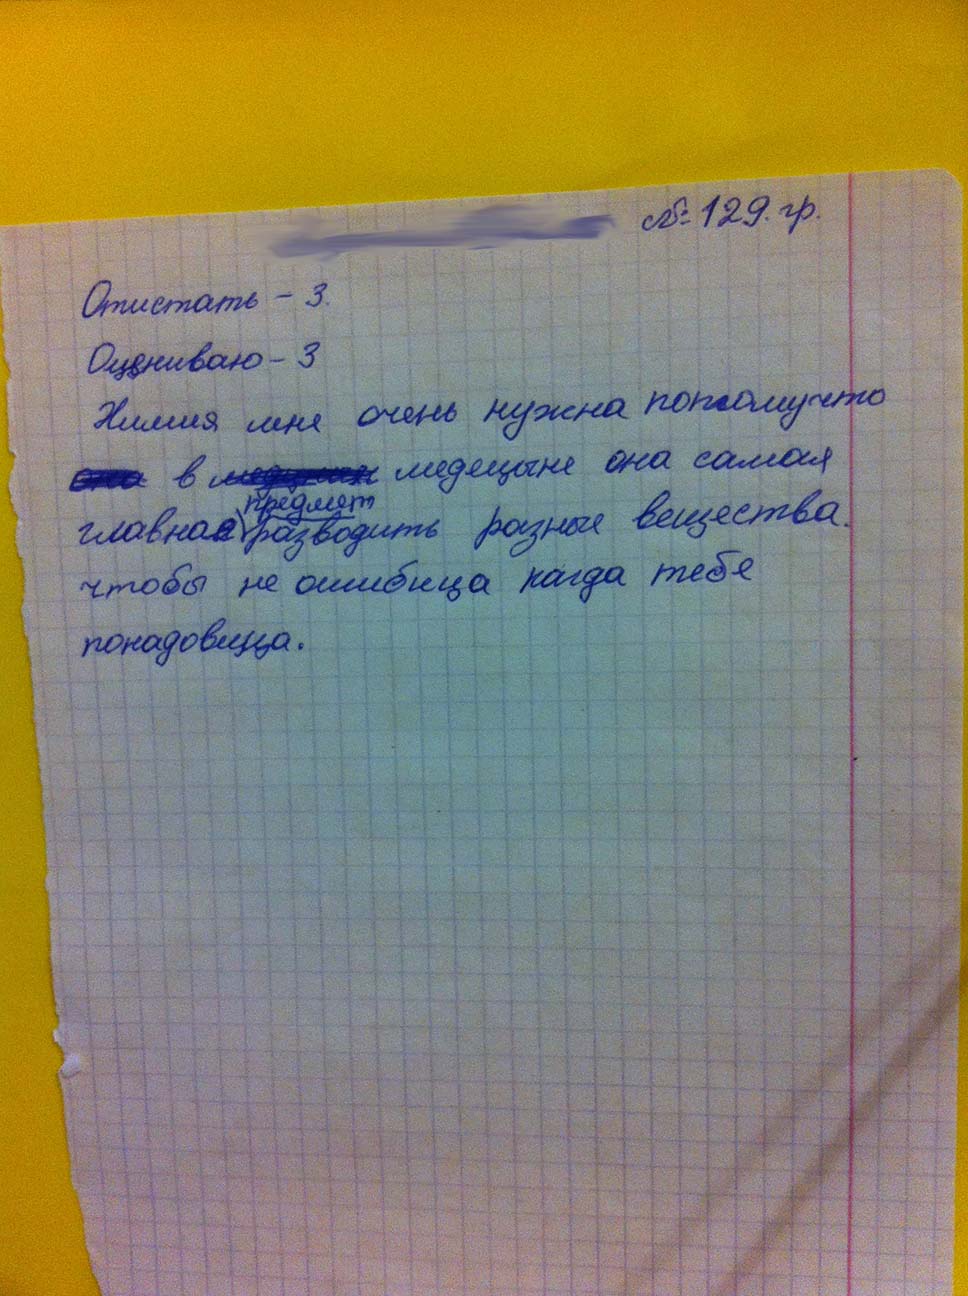 № 129. гр.
Отистать - 3.
Оцениваю - 3
Химия мне очень нужна потомучто
в медецыне она самая
предмет
главная разводить разные вещества.
чтобы не ошибица кагда тебе
понадовицца.